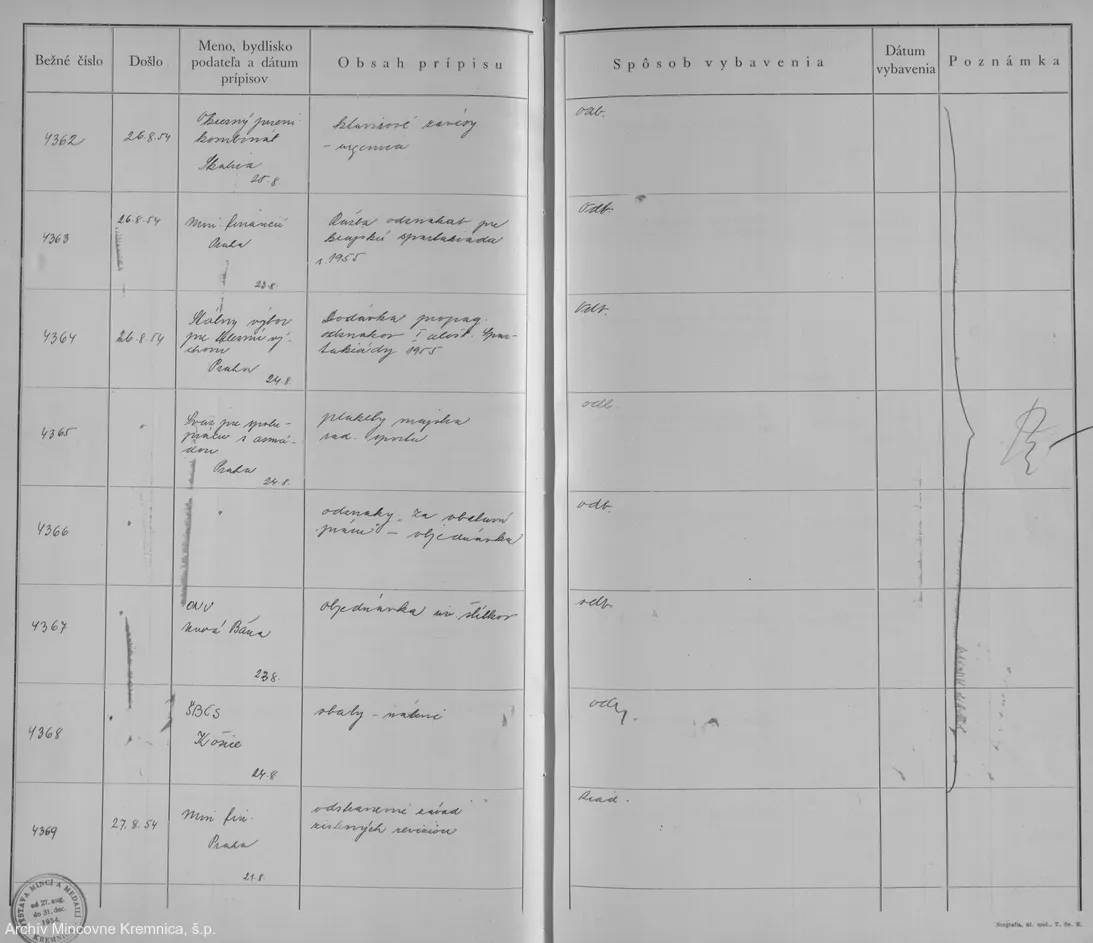 Bežné číslo
Došlo
Meno, bydlisko
podateľa a dátum
prípisov
Obsah prípisu
Spôsob vybavenia
Dátum
vybavenia
Poznámka
4362
26.8.54
Okresný
kombinát
Skalica
25.8.
závesy
- urgencia
odb.
4363
26.8.54
Min. financií
Praha
23.8.
Ražba odznakov pre
krajskú spartakiádu
r. 1955
Odb.
4364
26.8.54
Stálny výbor
pre telesnú vý-
chovu
Praha
24.8.
Dodávka propag.
odznakov I. celošt. Spar-
takiády 1955
Odb.
4365
Sväz pre spolu-
prácu s armá-
dou
Praha
24.8.
plakety majstra
rad. športu
odb.
4366
odznaky "Za obetavú
prácu" - objednávka
odb.
4367
ONV
Nová Baňa
23.8.
objednávka štítkov
odb.
4368
ŠBČS
Košice
24.8.
obaly -
odb.
4369
27.8.54
Min. fin.
Praha
21.8.
odstránenie závad
zistených revíziou
Riad.
VÝSTAVA MINCÍ A MEDAILÍ
od 27. aug.
do 31. dec.
1954.
KREMNICA
Archív Mincovne Kremnica, š.p.
Neografia, úč. spol., T. Sv. M.